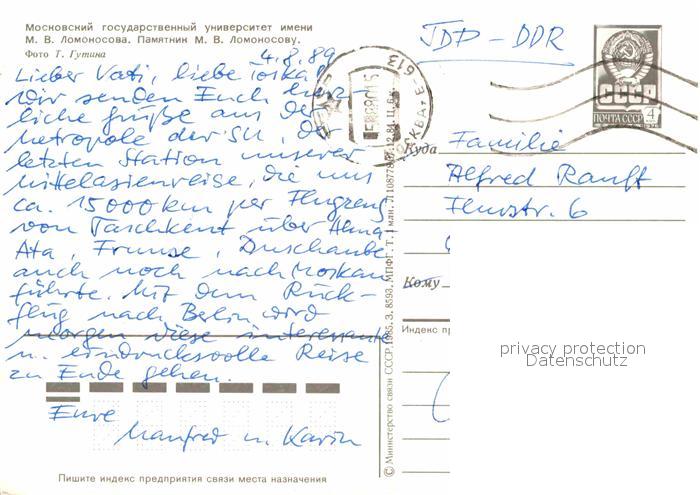 Московский государственный университет имени
М. В. Ломоносова. Памятник М. В. Ломоносову.
Фото Т. Гутина
4.8.89
Lieber Vati, liebe
wir senden Euch herz-
liche Grüße aus der
Metropole der SU, der
letzten Station unserer
Mittelasienreise, die uns
ca. 15 000 km per Flugzeug
von Taschkent über Alma
Ata, Frunse, Duschanbe
auch noch nach Moskau
führte. Mit dem Rück-
flug nach Berlin wird
morgen diese interessante
u. eindrucksvolle Reise
zu Ende gehen.
Eure
Manfred u. Karin
Пишите индекс предприятия связи места назначения
© Министерство связи СССР. 1985. З. 8593. МПФГ. Т. 1 млн.
ГДР – DDR
МОСКВА
613
СССР
ПОЧТА СССР 4
Куда
Familie
Alfred Ranft
Кому
Индекс пр
privacy protection
Datenschutz